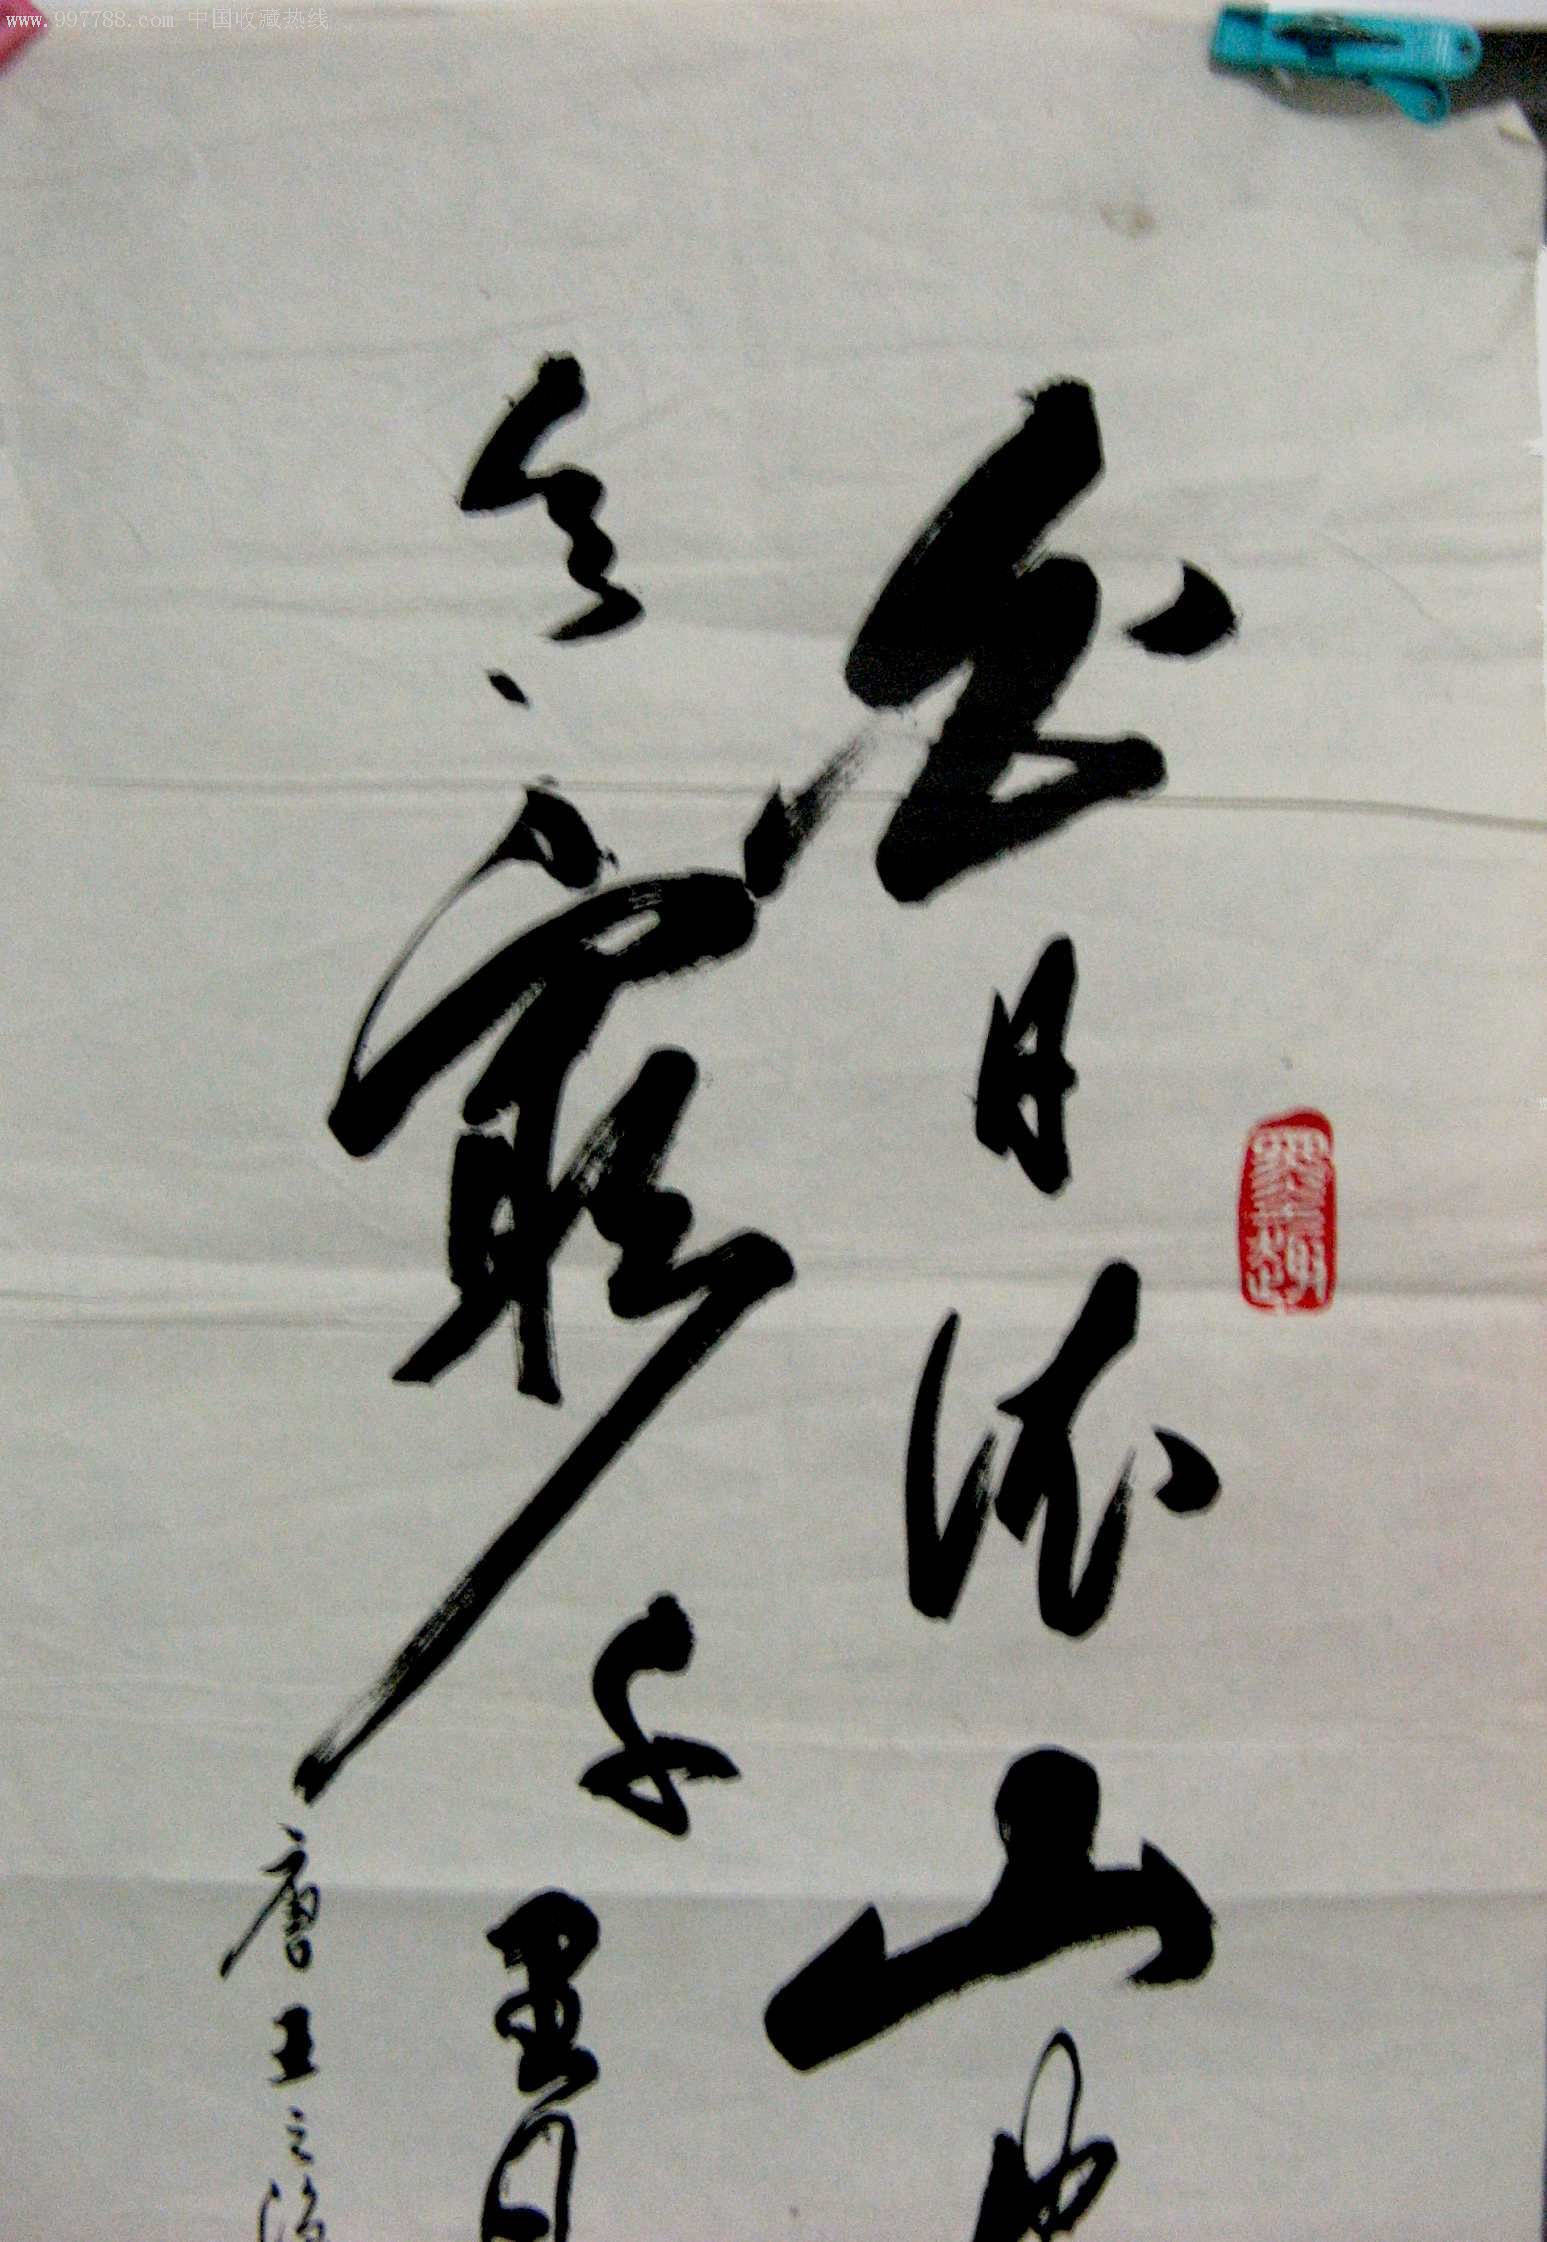 www.997788.com 中国收藏热线
白日依山尽
欲窮千里目
唐王之涣